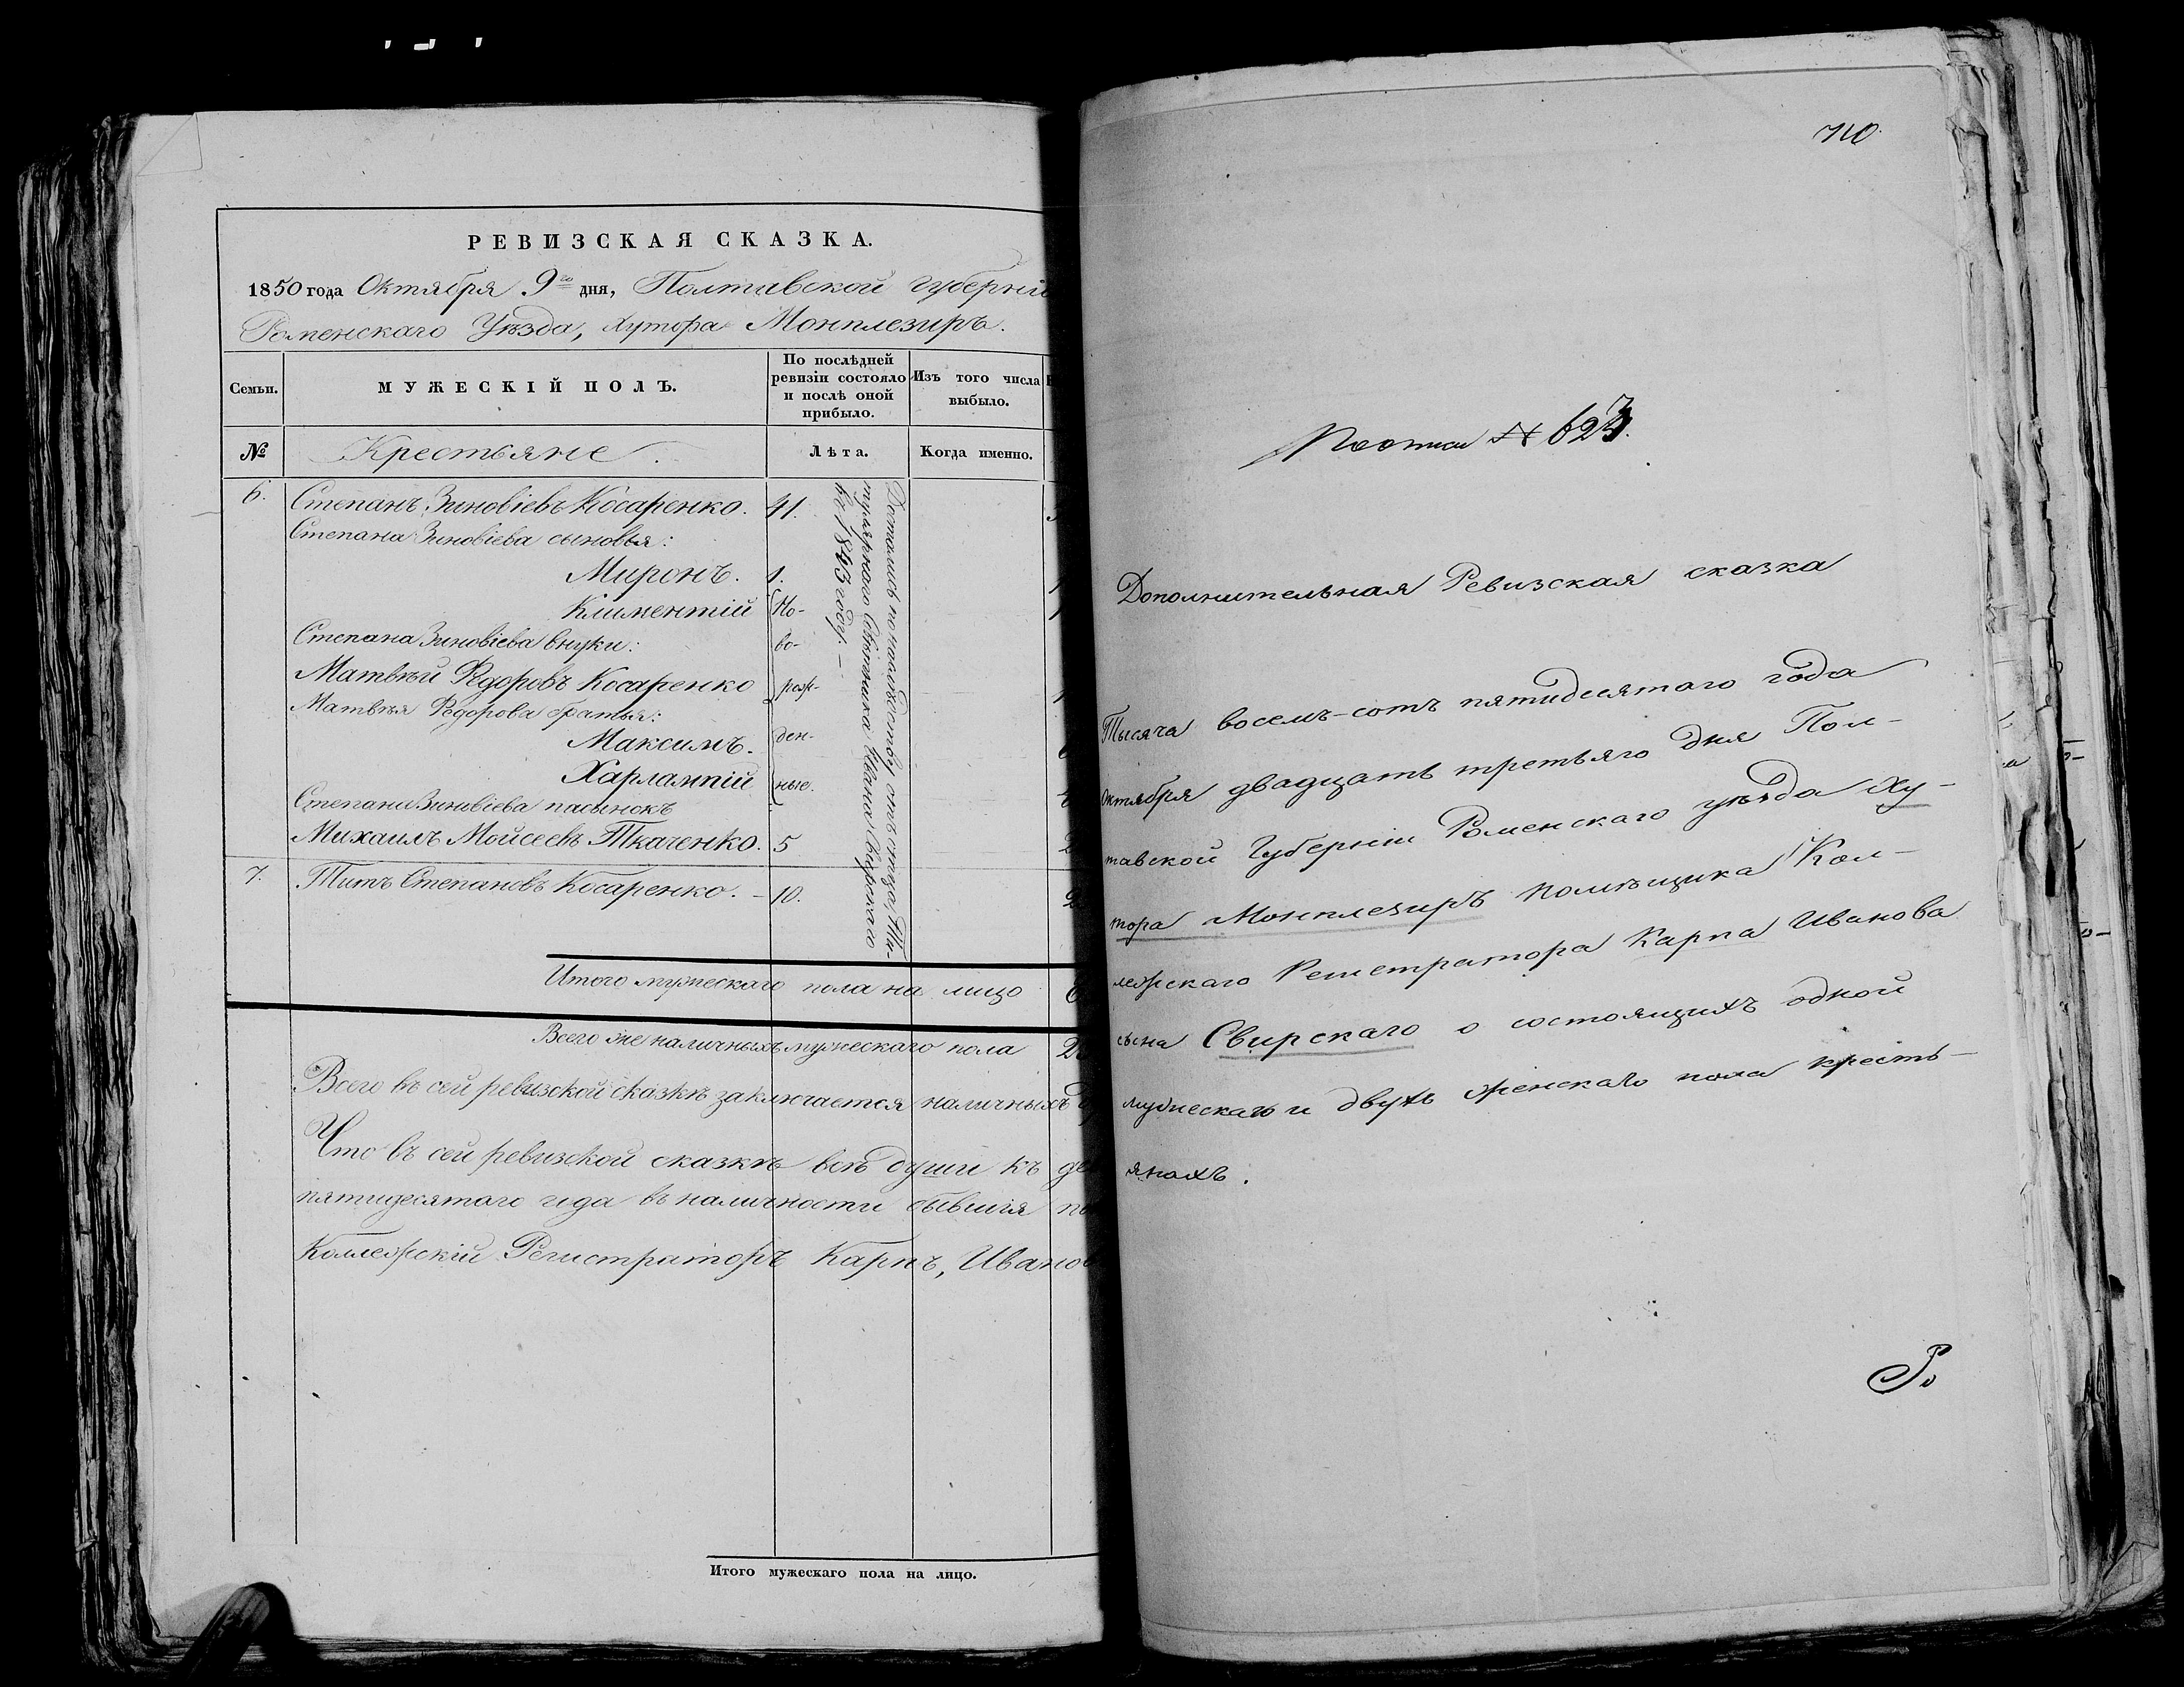 РЕВИЗСКАЯ СКАЗКА.
1850 года Октября 9го дня, Полтавской губерніи
Роменскаго Уѣзда, Хутора Монплезиръ.
Семьи.
МУЖЕСКІЙ ПОЛЪ.
По послѣдней ревизіи состояло и послѣ оной прибыло.
Изъ того числа выбыло.
№
Крестьяне.
Лѣта.
Когда именно.
6. Степанъ Зиновіевъ Косаренко. 41.
Степана Зиновіева сыновья:
Миронъ. 1.
Климентій Но-
Степана Зиновіева внуки: во-
Матвѣй Ѳедоровъ Косаренко рож-
Матвѣя Ѳедорова братья:
Максимъ. ден-
Харлампій ные.
Степана Зиновіева пасынокъ
Михаилъ Мойсеевъ Ткаченко. 5
7. Титъ Степановъ Косаренко. - 10.
Достались по наслѣдству отъ отца, Ти-
тулярнаго Совѣтника Ивана Свирскаго
въ 1843 году. —
Итого мужескаго пола на лицо
Всего же наличныхъ мужескаго пола
Всего въ сей ревизской сказкѣ заключается наличныхъ
Что въ сей ревизской сказкѣ всѣ души къ
пятидесятаго года въ наличности бывшія
Коллежскій Регистраторъ Карпъ, Иванов
Итого мужескаго пола на лицо.
710.
№ 623.
Дополнительная Ревизская сказка
Тысяча восемь-сотъ пятидесятаго года
Октября двадцать третьяго дня Пол-
тавской Губерніи Роменскаго уѣзда Ху-
тора Монплезиръ помѣщика Кол-
лежскаго Регистратора Карпа Иванова
сына Свирскаго о состоящихъ одной
мужескаго и двухъ женскаго пола кресть-
янахъ.